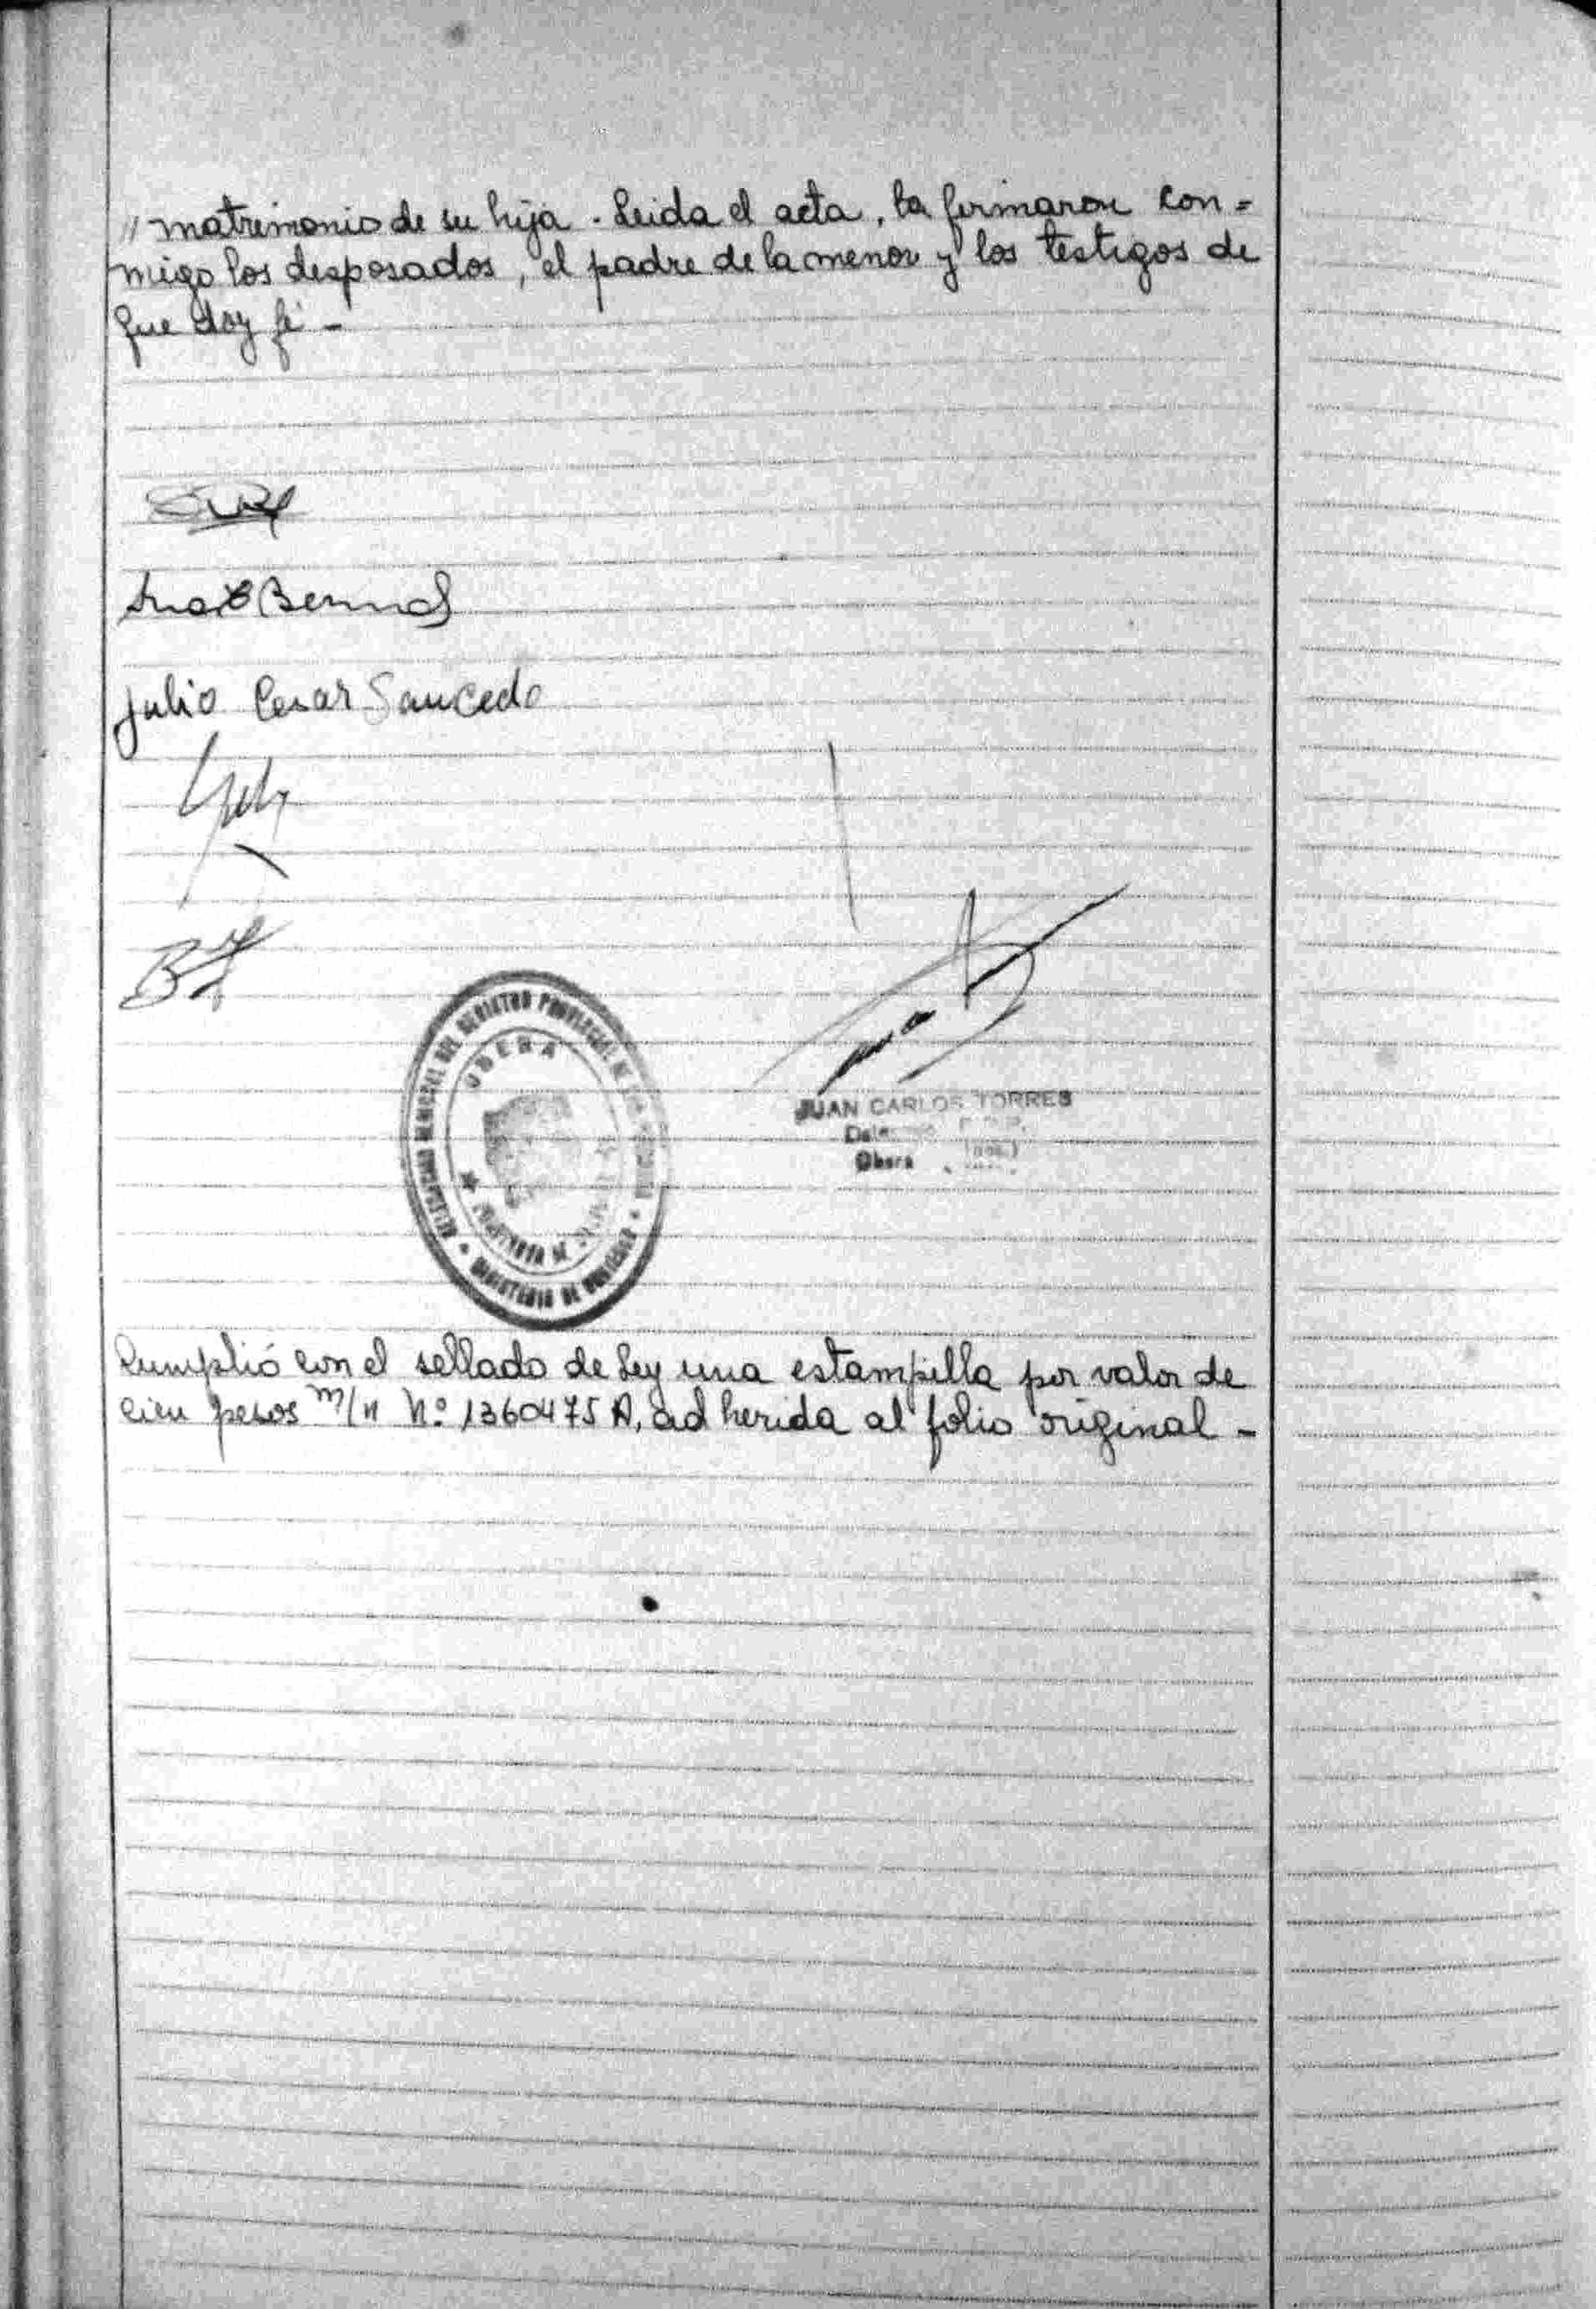 // matrimonio de su hija. Leida el acta, la firmaron con=
migo los desposados, el padre de la menor y los testigos de
que doy fé -
Bernal
Julio Cesar Saucedo
OBERA
MINISTERIO DE
JUAN CARLOS TORRES
Obera
Cumplió con el sellado de Ley una estampilla por valor de
cien pesos m/n Nº 1360475 A, adherida al folio original -